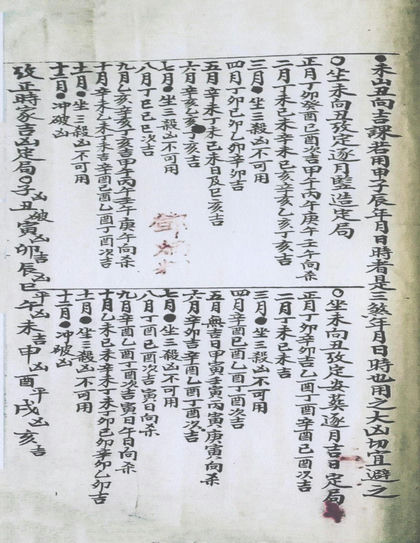 ●未山丑向吉課若用申子辰年月日時者是三煞年月日時也用之大凶切宜避之
○坐未向丑改定逐月豎造定局
正月丁卯癸酉己酉次吉甲午丙午庚午壬午向杀
二月丁未己未辛未己亥辛亥乙亥丁亥吉
三月●坐三殺凶不可用
四月丁卯己卯乙卯辛卯吉
五月辛未丁未己未日及己亥次吉
六月辛亥乙亥次吉
七月●坐三殺凶不可用
八月丁巳己巳次吉
九月乙亥辛亥丁亥吉甲午丙午壬午庚午向杀
十月辛未乙未丁未吉辛酉己酉乙酉丁酉次吉
十一月●坐三殺凶不可用
十二月●冲破凶
○坐未向丑改定安葬逐月吉日定局
正月丁卯辛卯吉乙酉丁酉辛酉己酉次吉
二月丁未己未吉
三月●坐三殺凶不可用
四月辛酉己酉乙酉丁酉次吉
五月無吉日甲寅壬寅丙寅庚寅向杀
六月辛卯吉辛酉乙酉丁酉次吉
七月●坐三殺凶不可用
八月丁酉己酉次吉寅日向杀
九月辛酉乙酉丁酉次吉寅日午日向杀
十月乙未己未辛未丁未丁卯己卯辛卯乙卯吉
十一月●坐三殺凶不可用
十二月●冲破凶
改正時家吉凶定局○子凶丑破寅凶卯吉辰凶巳平午吉未平申凶酉平戌凶亥吉